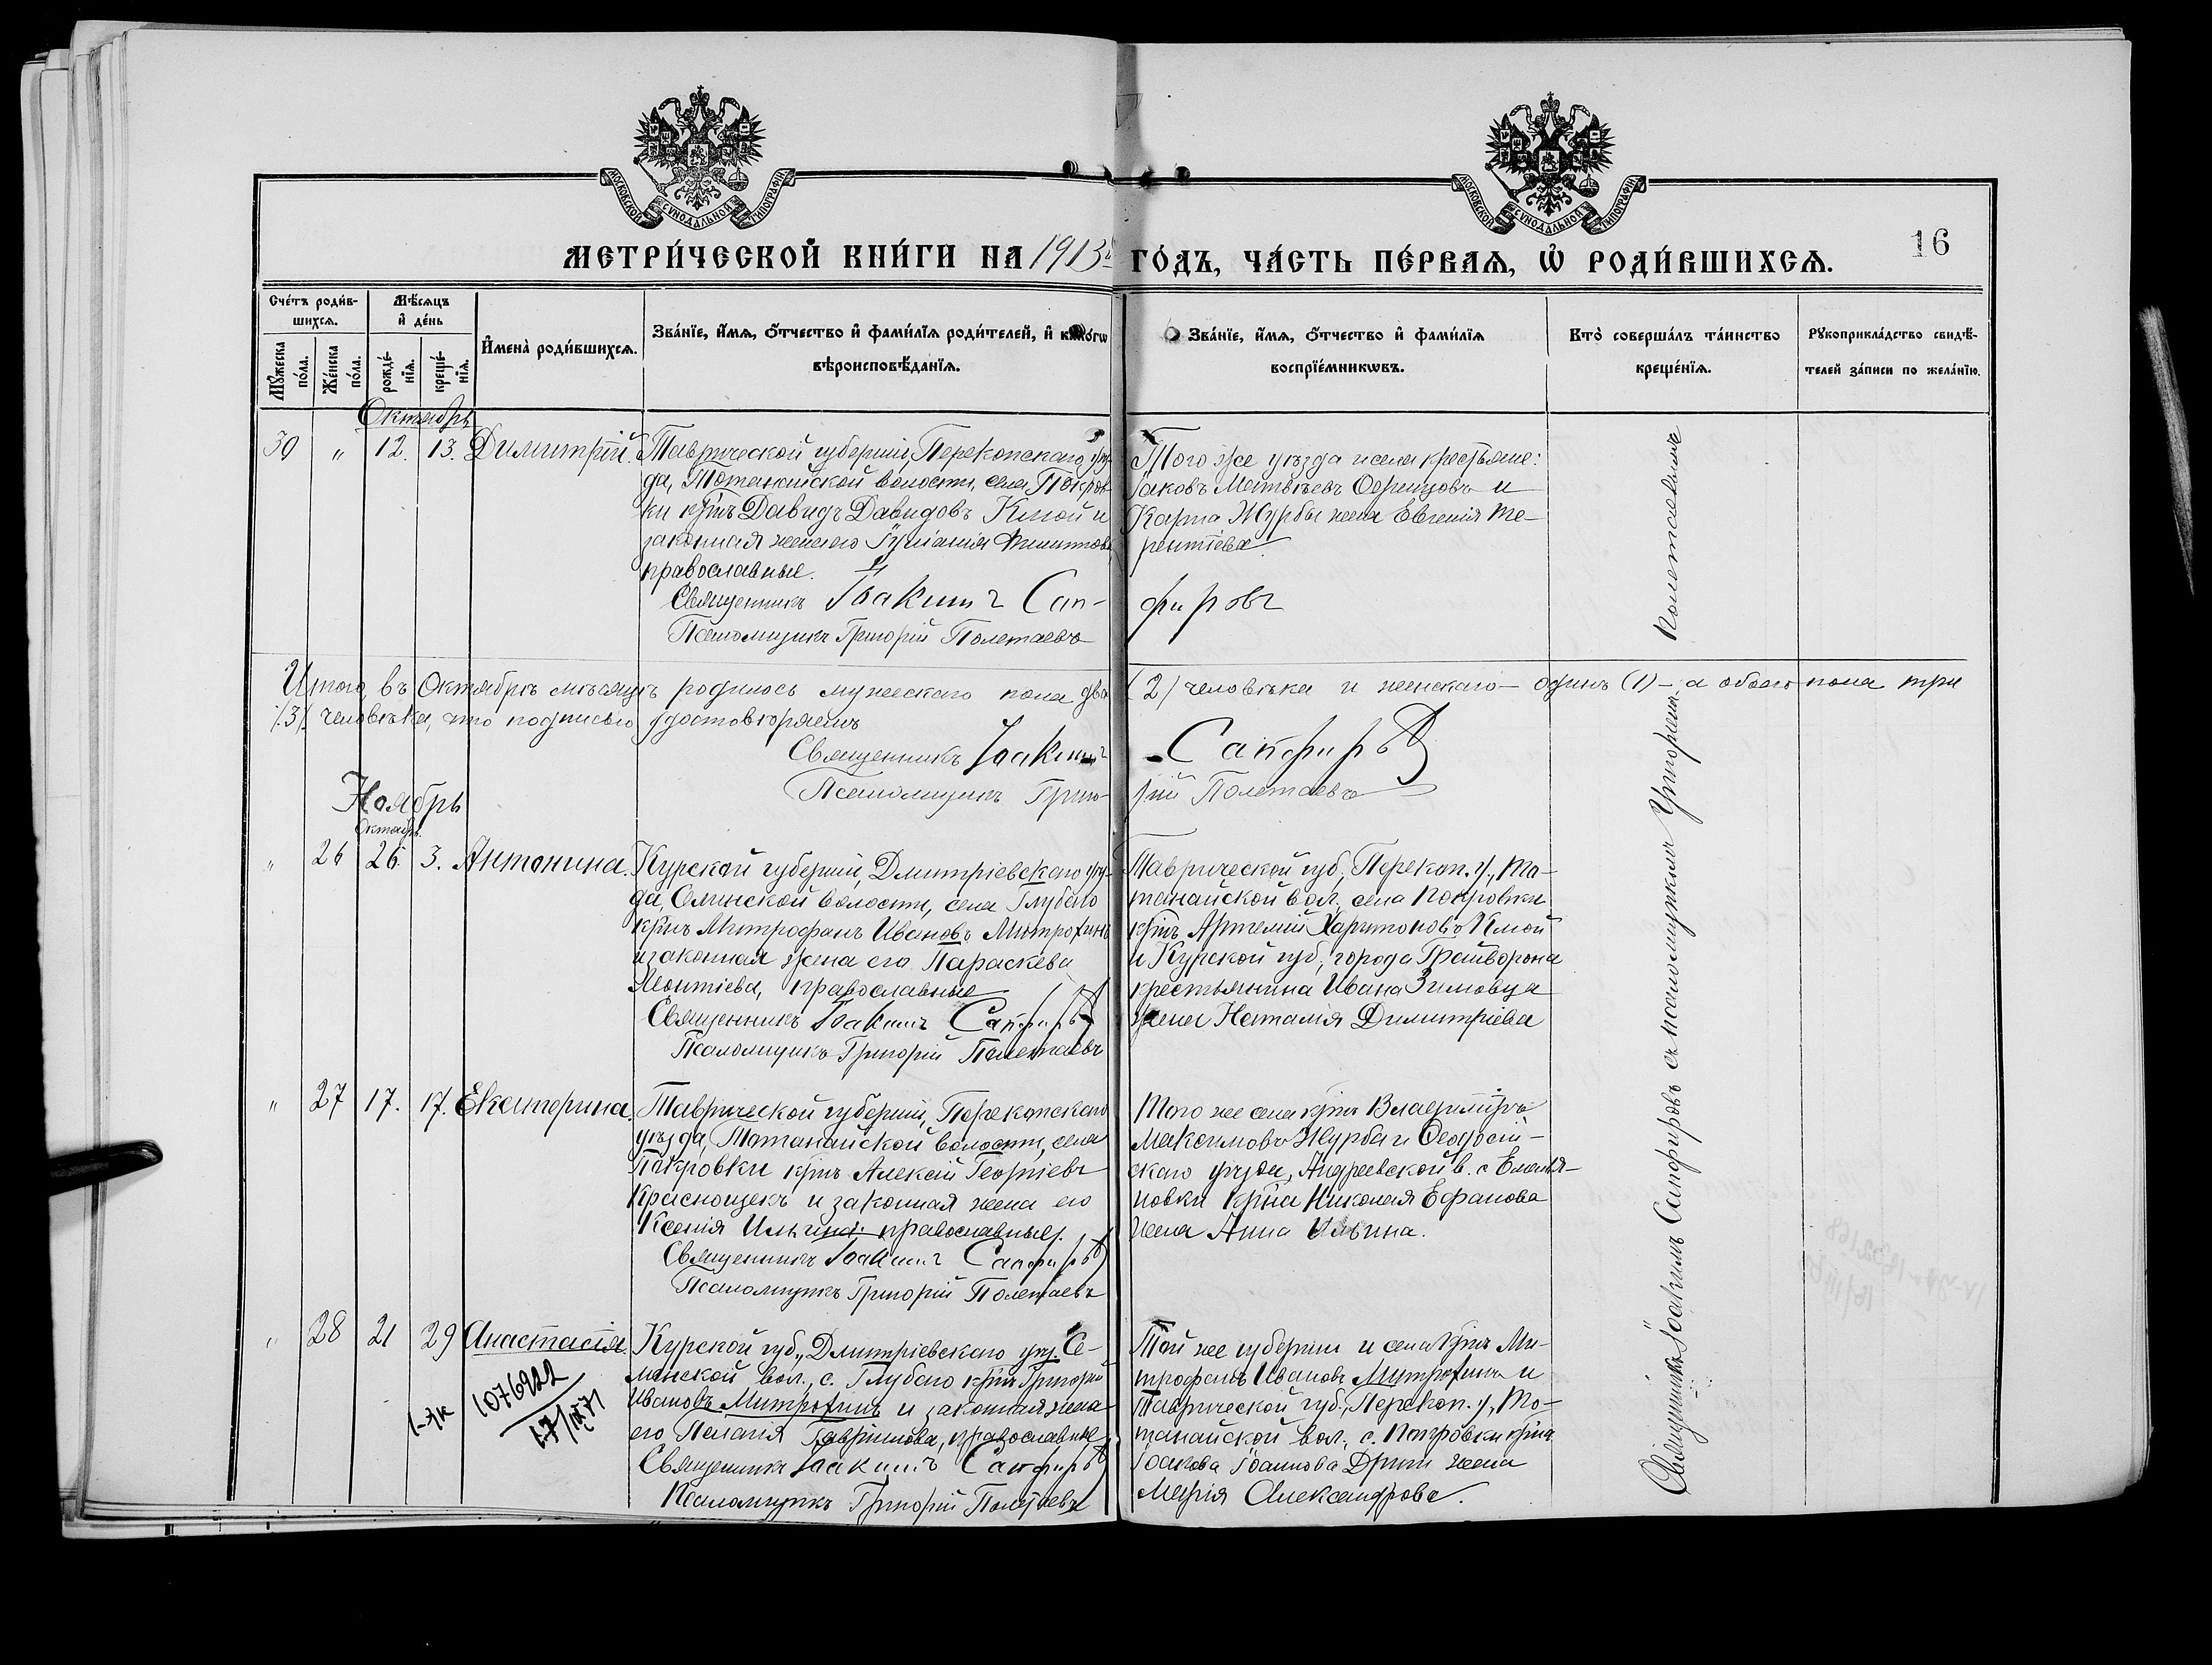 МОСКОВСКОЙ СѴНОДАЛЬНОЙ ТИПОГРАФІИ
МОСКОВСКОЙ СѴНОДАЛЬНОЙ ТИПОГРАФІИ
МЕТРИ́ЧЕСКОЙ КНИ́ГИ НА 1913й ГО́ДЪ, ЧА́СТЬ ПЕ́РВАѦ, Ѡ҆ РОДИ́ВШИХСѦ.
16
Сче́тъ роди́в-
шихсѧ.
Мꙋ́жеска по́ла.
Же́нска по́ла.
Мѣ́сѧцъ
и҆ де́нь
рожде́-
нїѧ.
креще́-
нїѧ.
И҆мена̀ роди́вшихсѧ.
Зва́нїе, и҆́мѧ, ѻ҆́тчество и҆ фами́лїѧ роди́телей, и҆ како́гѡ
вѣроисповѣ́данїѧ.
Зва́нїе, и҆́мѧ, ѻ҆́тчество и҆ фами́лїѧ
воспрїе́мникѡвъ.
Кто̀ соверша́лъ та́инство
креще́нїѧ.
Рꙋкоприкла́дство свидѣ́-
телей за́писи по жела́нїю.
Октябрь
30 " 12. 13. Димитрій.
Таврической губерніи, Перекопскаго уѣз-
да, Тотанайской волости, села Покров-
ки кр̃нъ Давидъ Давидовъ Кмой и
законная жена его
православные.
Священникъ Іоакимъ Сап-
фировъ
Псаломщикъ Григорій Полетаевъ
Того же уѣзда и села крестьяне:
Іаковъ Матвѣевъ и
Карпа Журбы жена Евгенія Те-
рентіева.
Итого въ Октябрѣ мѣсяцѣ родилось мужескаго пола два (2) человѣка и женскаго – одинъ (1) – а обоего пола три
/3/ человѣка, что подписью удостовѣряемъ
Священникъ Іоакимъ Сапфировъ
Псаломщикъ Григо-
рій Полетаевъ
Ноябрь
Октябрь.
" 26 26 3. Антонина.
Курской губерніи, Дмитріевскаго уѣз-
да, волости, села Глубаго
кр̃нъ Митрофанъ Ивановъ Митрохинъ
и законная жена его Параскева
Леонтіева, православные
Священникъ Іоакимъ Сапфировъ
Псаломщикъ Григорій Полетаевъ
Таврической губ., Перекоп. у., То-
танайской вол., села Покровки
кр̃нъ Артемій Харитоновъ Кмой
и Курской губ., города Грайворона
крестьянина Ивана Зимовца
жена Наталія Димитріева
" 27 17. 17. Екатерина.
Таврической губерніи, Перекопскаго
уѣзда, Тотанайской волости, села
Покровки кр̃нъ Алексій Георгіевъ
Краснощекъ и законная жена его
Ксенія Ильина: православные.
Священникъ Іоакимъ Сапфировъ
Псаломщикъ Григорій Полетаевъ
Того же села кр̃нъ Владиміръ
Максимовъ Журба и Ѳеодосій-
скаго уѣзда, Андреевской в. с. Емелья-
новки кр̃на Николая Ефанова
жена Анна Ильина.
" 28 21 29 Анастасія.
1076922
17/IX 71
Курской губ., Дмитріевскаго уѣз. Се-
минской вол., с. Глубаго кр̃нъ Григорій
Ивановъ Митрохинъ и законная жена
его Пелагія Гавріилова, православные
Священникъ Іоакимъ Сапфировъ
Псаломщикъ Григорій Полетаевъ
Той же губерніи и села кр̃нъ Ми-
трофанъ Ивановъ Митрохинъ и
Таврической губ., Перекоп. у., То-
танайской вол., с. Покровки кр̃на
Іоакова Іоаннова жена
Марія Александрова.
Священникъ Іоакимъ Сапфировъ съ псаломщикомъ Григоріемъ Полетаевымъ